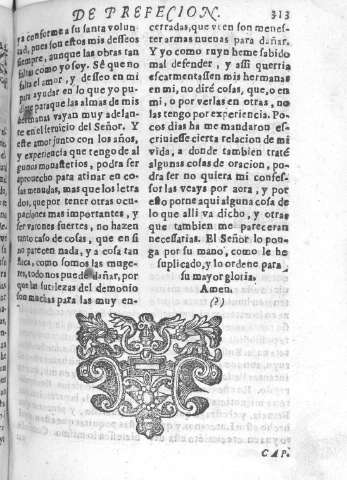 DE PREFECION. 313
ra conforme a su santa volun-
tad, pues son estos mis desseos
siempre, aunque las obras tan
faltas como yo soy. Sè que no
falta el amor, y desseo en mi
para ayudar en lo que yo pu-
diere para que las almas de mis
hermanas vayan muy adelan-
te en el servicio del Señor. Y
este amor junto con los años,
y experiencia que tengo de al
gunos monasterios, podra ser
aproueche para atinar en co-
sas menudas, mas que los letra
dos, que por tener otras ocu-
paciones mas importantes, y
ser varones fuertes, no hazen
tanto caso de cosas, que en si
no parecen nada, y a cosa tan
flaca, como somos las muge-
res, todo nos puede dañar, por
que las sutilezas del demonio
son muchas para las muy en-
cerradas, que veen son menes-
ter armas nueuas para dañar.
Y yo como ruyn heme sabido
mal defender, y assi querria
escarmentassen mis hermanas
en mi, no diré cosas, que, o en
mi, o por verlas en otras, no
las tengo por experiencia. Po-
cos dias ha me mandaron es-
criuiesse cierta relacion de mi
vida, a donde tambien traté
algunas cosas de oracion, po-
dra ser no quiera mi confes-
sor las veays por aora, y por
esto porne aqui alguna cosa de
lo que alli va dicho, y otras
que tambien me pareceran
necessarias. El Señor lo pon-
ga por su mano, como le he
suplicado, y lo ordene para
su mayor gloria.
Amen.
(?)
CAP.